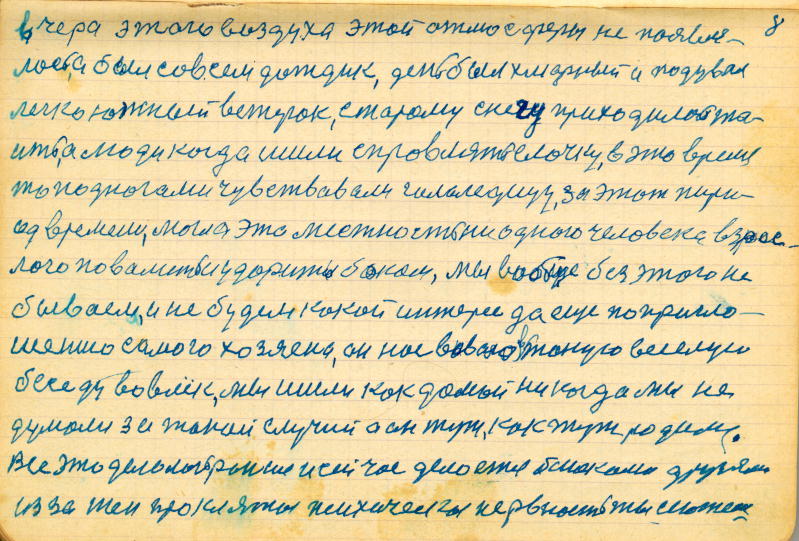 8
вчера этого воздуха этой отмосферы не появля-
лось, а был совсем дождик, день был хмарный и подувал
легко южный ветерок, старому снегу приходилось та-
ить, а люди когда ишли справлять елочку, в это время
то под ногами чувствавали гололедицу, за этот пири-
од времени, могла эта местность ни одного человека взрос-
лого повалить и ударить боком, мы вообще без этого не
бываем, и не будем какой интерес да еще по пригло-
шению самого хозяена, он нас в такую веселую
беседу вовлёк, мы ишли как домой никогда мы не
думали за такой случий а он тут, как тут родимы.
Все это делалось раньше и сейчас делается с нашими друзями
из за тей проклятой психическай нервность ты сможеш